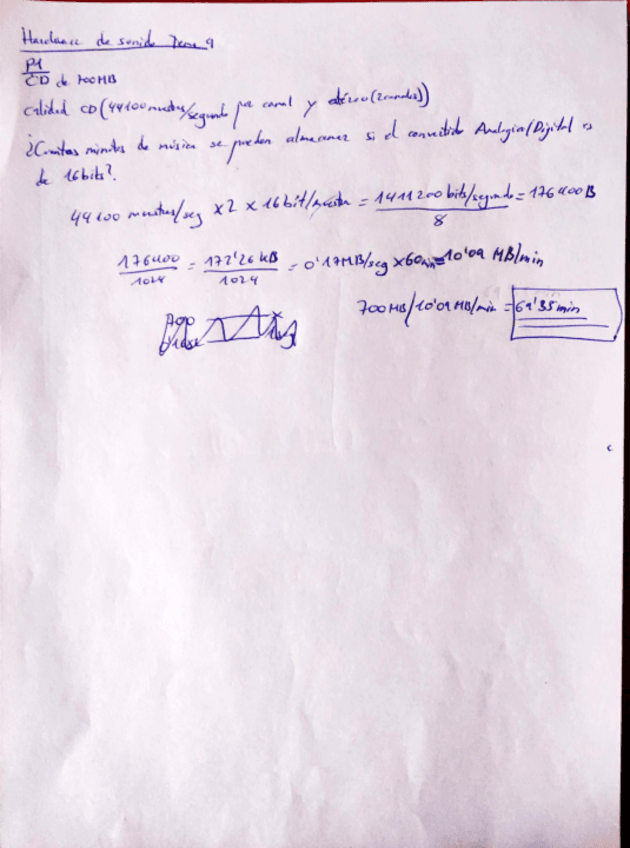 Hardware de sonido Tema 9
P1
CD de 700MB
Calidad CD (44100 muestras/segundo por canal y estéreo (2 canales))
¿Cuántos minutos de música se pueden almacenar si el convertido Analógico/Digital es
de 16 bits?.
44100 muestras/seg x2 x 16 bit/muestra = 1411200 bits/segundo / 8 = 176400 B
176400 / 1024 = 172'26 kB / 1024 = 0'17MB/seg x 60 = 10'09 MB/min
700 MB / 10'09 MB/min = 69'35 min